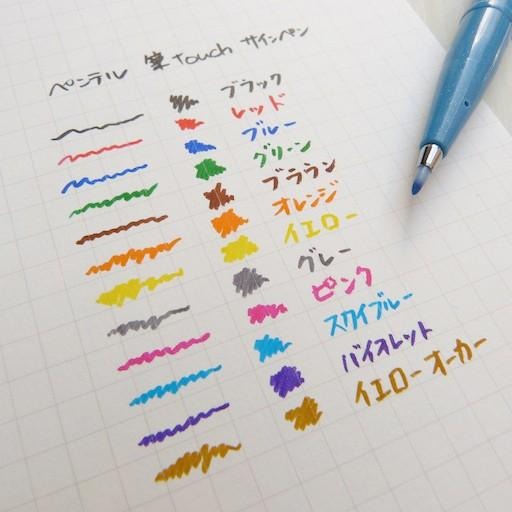 ペンテル 筆touch サインペン
ブラック
レッド
ブルー
グリーン
ブラウン
オレンジ
イエロー
グレー
ピンク
スカイブルー
バイオレット
イエローオーカー